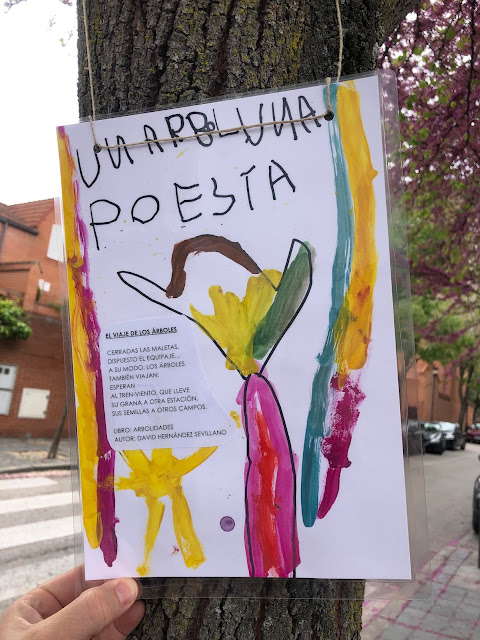 UN ARBOL UNA
POESIA
EL VIAJE DE LOS ÁRBOLES
CERRADAS LAS MALETAS,
DISPUESTO EL EQUIPAJE...
A SU MODO, LOS ÁRBOLES
TAMBIÉN VIAJAN:
ESPERAN
AL TREN-VIENTO, QUE LLEVE
SU GRANA A OTRA ESTACIÓN,
SUS SEMILLAS A OTROS CAMPOS.
LIBRO: ARBOLIDADES
AUTOR: DAVID HERNÁNDEZ SEVILLANO